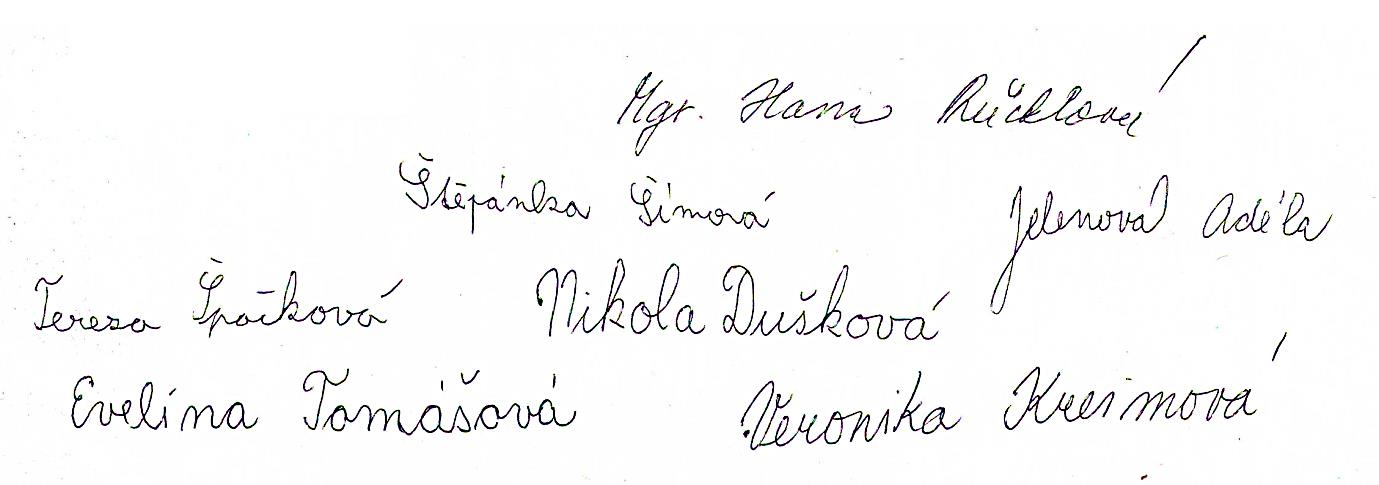 Mgr. Hana Rücklová
Štěpánka Šímová Jelenová Adéla
Tereza Špačková Nikola Dušková
Evelína Tomášová Veronika Kreimová